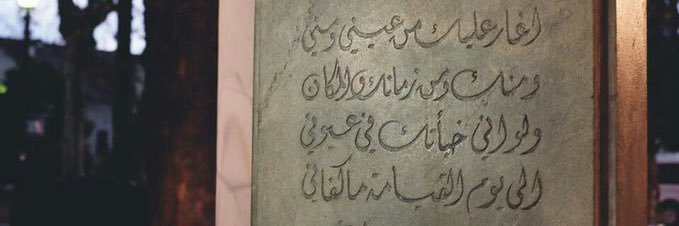 أغار عليك من عيني ومني
ومنك ومن زمانك والمكان
ولو اني خبأتك في عيوني
الى يوم القيامة ما كفاني